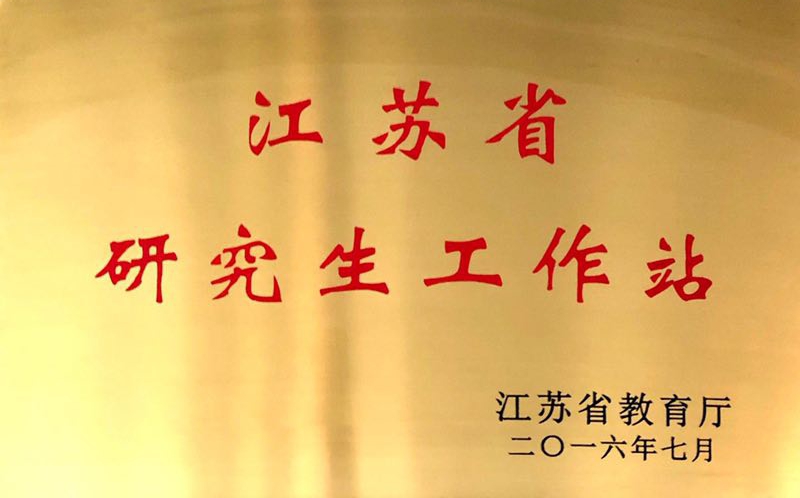 江苏省
研究生工作站
江苏省教育厅
二〇一六年七月